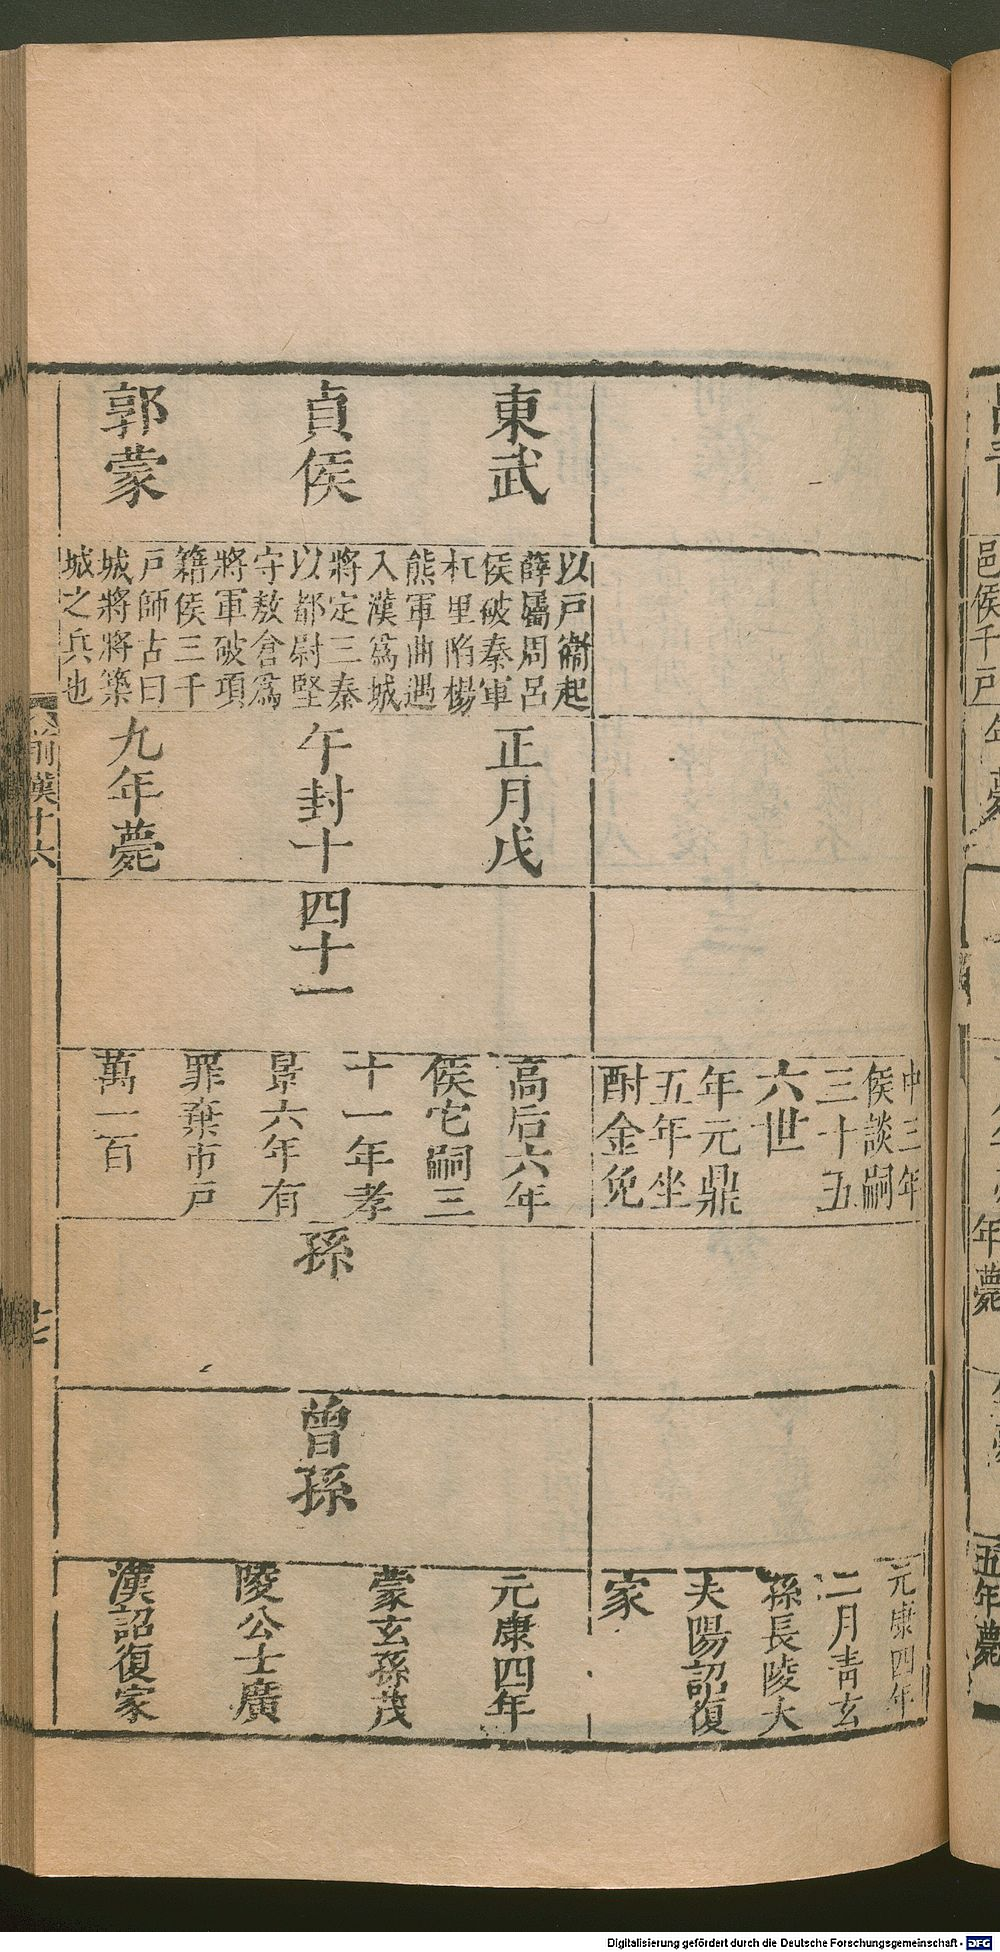 中三年
侯談嗣
三十五
六世
年元鼎
五年坐
酎金免
元康四年
二月青玄
孫長陵大
夫陽詔復
家
東武
貞侯
郭蒙
以戶衞起
薛屬周呂
侯破秦軍
杠里陷楊
熊軍曲遇
入漢爲城
將定三秦
以都尉堅
守敖倉爲
將軍破項
籍侯三千
戶師古曰
城將將築
城之兵也
正月戊
午封十
九年薨
四十一
高后六年
侯它嗣三
十一年孝
景六年有
罪棄市戶
萬一百
孫
曾孫
元康四年
蒙玄孫茂
陵公士廣
漢詔復家
前漢十六
邑侯千戸
年薨
五年薨
Digitalisierung gefördert durch die Deutsche Forschungsgemeinschaft - DFG